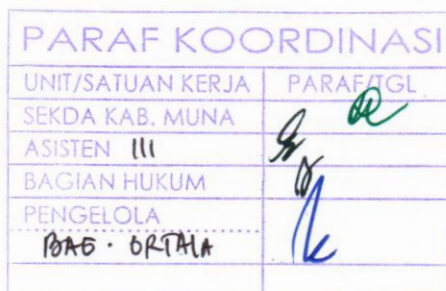 PARAF KOORDINASI
UNIT/SATUAN KERJA PARAF/TGL
SEKDA KAB. MUNA
ASISTEN III
BAGIAN HUKUM
PENGELOLA
BAG. ORTALA